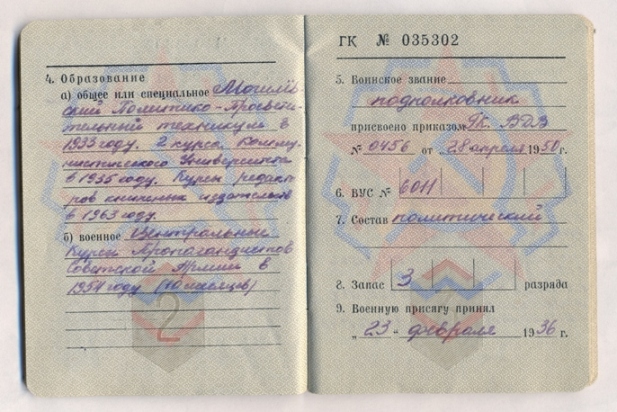 4. Образование
а) общее или специальное Могилёв-
ский Политико-Просвети-
тельный техникум в
1933 году. 2 курса Комму-
нистического Университета
в 1935 году. Курсы редакто-
ров книжных издательств
в 1963 году.
б) военное Центральные
Курсы Пропагандистов
Советской Армии в
1954 году (10 месяцев)
2
ГК № 035302
5. Воинское звание
подполковник
присвоено приказом ГК. ВДВ
№ 0456 от 28 апреля 1950 г.
6. ВУС № 6011
7. Состав политический
8. Запас 3 разряда
9. Военную присягу принял
„ 23 “ февраля 1936 г.